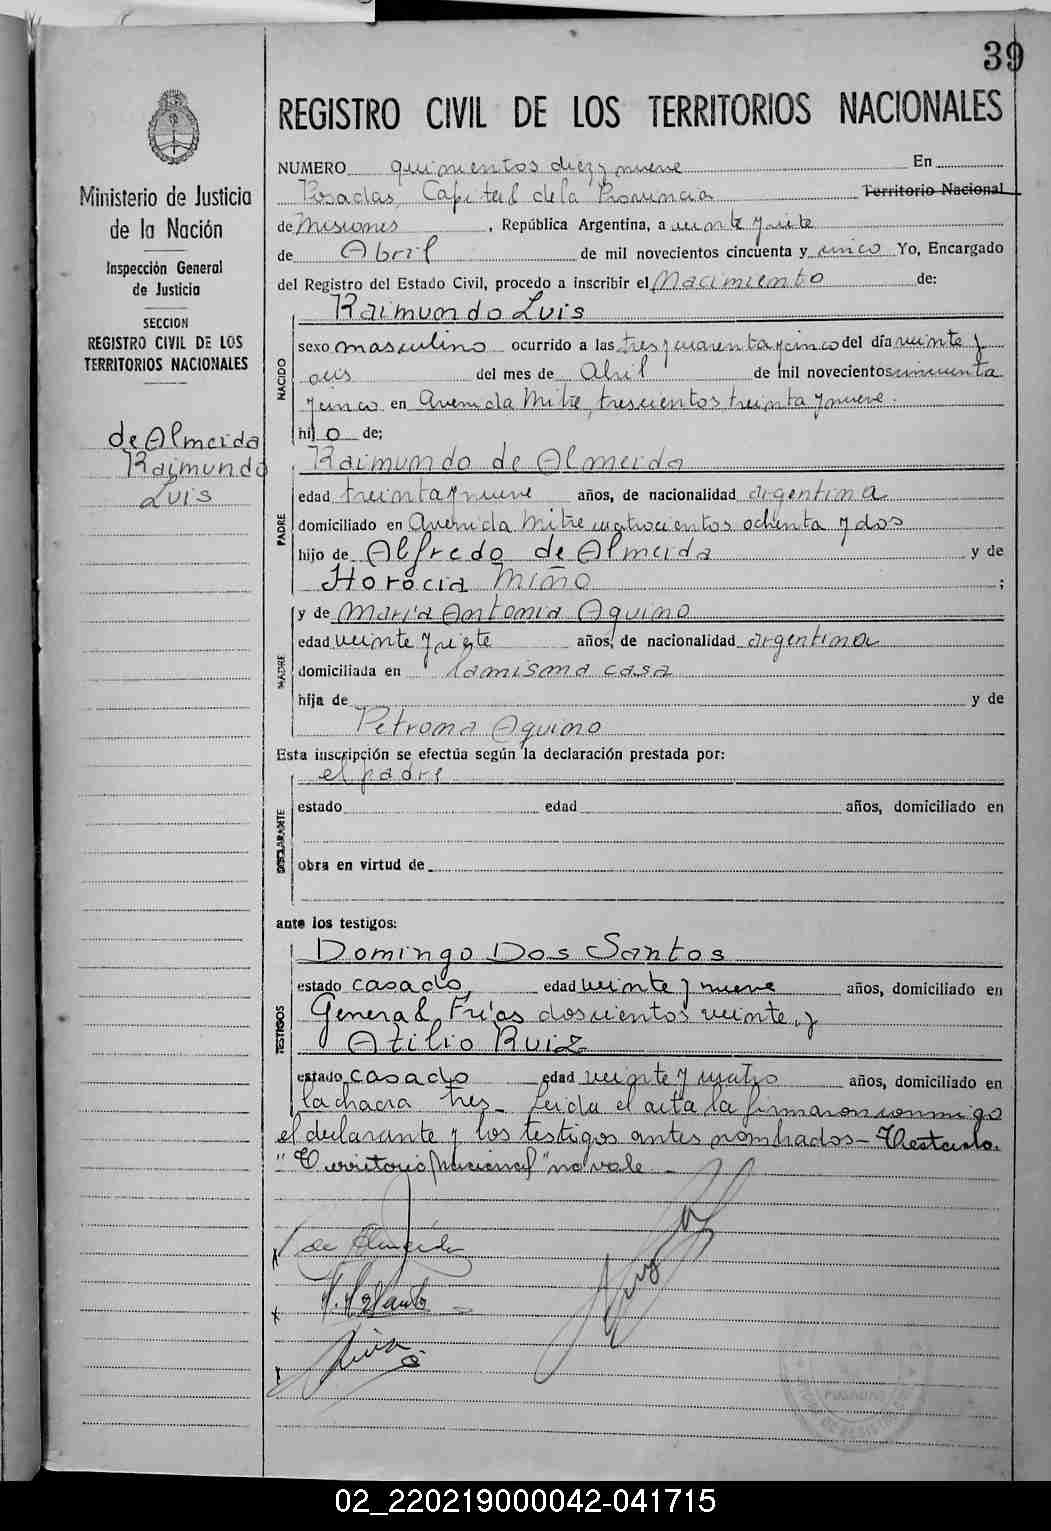 39
REGISTRO CIVIL DE LOS TERRITORIOS NACIONALES
Ministerio de Justicia
de la Nación
Inspección General
de Justicia
SECCION
REGISTRO CIVIL DE LOS
TERRITORIOS NACIONALES
de Almeida
Raimundo
Luis
NUMERO quinientos diez y nueve En
Posadas, Capital de la Provincia Territorio Nacional
de Misiones, República Argentina, a veinte y siete
de Abril de mil novecientos cincuenta y cinco Yo, Encargado
del Registro del Estado Civil, procedo a inscribir el Nacimiento de:
NACIDO
Raimundo Luis
sexo masculino ocurrido a las tres y cuarenta y cinco del día veinte y
seis del mes de Abril de mil novecientos cincuenta
y cinco en Avenida Mitre, trescientos treinta y nueve.
hijo de;
PADRE
Raimundo de Almeida
edad treinta y nueve años, de nacionalidad argentina
domiciliado en Avenida Mitre cuatrocientos ochenta y dos
hijo de Alfredo de Almeida y de
Horacia Miño ;
MADRE
y de María Antonia Aquino
edad veinte y siete años, de nacionalidad argentina
domiciliada en la misma casa
hija de y de
Petrona Aquino
Esta inscripción se efectúa según la declaración prestada por:
DECLARANTE
el padre
estado edad años, domiciliado en
obra en virtud de
ante los testigos:
TESTIGOS
Domingo Dos Santos
estado casado, edad veinte y nueve años, domiciliado en
General Frías doscientos veinte, y
Atilio Ruiz
estado casado edad veinte y cuatro años, domiciliado en
la chacra tres_ Leida el acta la firmaron conmigo
el declarante y los testigos antes nombrados_ Testado.
"Territorio Nacional" no vale_
de Almeida
POSADAS
02_220219000042-041715